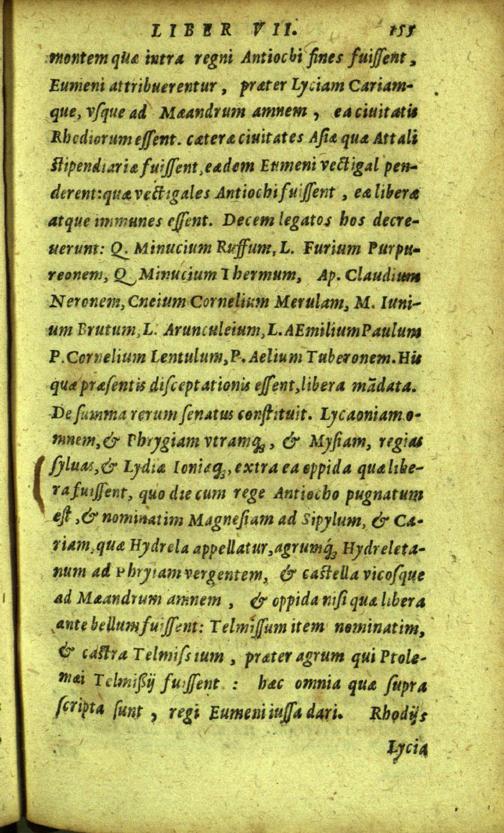 LIBER VII. 155
montem quæ intra regni Antiochi fines fuiſſent,
Eumeni attribuerentur, præter Lyciam Cariam-
que, vſque ad Mæandrum amnem, ea ciuitatis
Rhodiorum eſſent. cæteræ ciuitates Aſiæ quæ Attali
ſtipendiariæ fuiſſent, eædem Eumeni vectigal pen-
derent: quæ vectigales Antiochi fuiſſent, eæ liberæ
atque immunes eſſent. Decem legatos hos decre-
uerunt: Q. Minucium Ruffum, L. Furium Purpu-
reonem, Q Minucium Thermum, Ap. Claudium
Neronem, Cneium Cornelium Merulam, M. Iuni-
um Brutum, L. Arunculeium, L. AEmilium Paulum
P. Cornelium Lentulum, P. Aelium Tuberonem. His
quæ præſentis diſceptationis eſſent, libera mãdata.
De ſumma rerum ſenatus conſtituit. Lycaoniam o-
mnem, & Phrygiam vtramq;, & Myſiam, regias
ſyluas, & Lydiæ Ioniæq;, extra ea oppida quæ libe-
ra fuiſſent, quo die cum rege Antiocho pugnatum
eſt, & nominatim Magneſiam ad Sipylum, & Ca-
riam, quæ Hydrela appellatur, agrumq́; Hydreleta-
num ad Phryiam vergentem, & caſtella vicoſque
ad Mæandrum amnem, & oppida niſi quæ libera
ante bellum fuiſſent: Telmiſſum item nominatim,
& caſtra Telmiſsium, præter agrum qui Ptole-
mæi Telmißij fuiſſent: hæc omnia quæ ſupra
ſcripta ſunt, regi Eumeni iuſſa dari. Rhodijs
Lycia